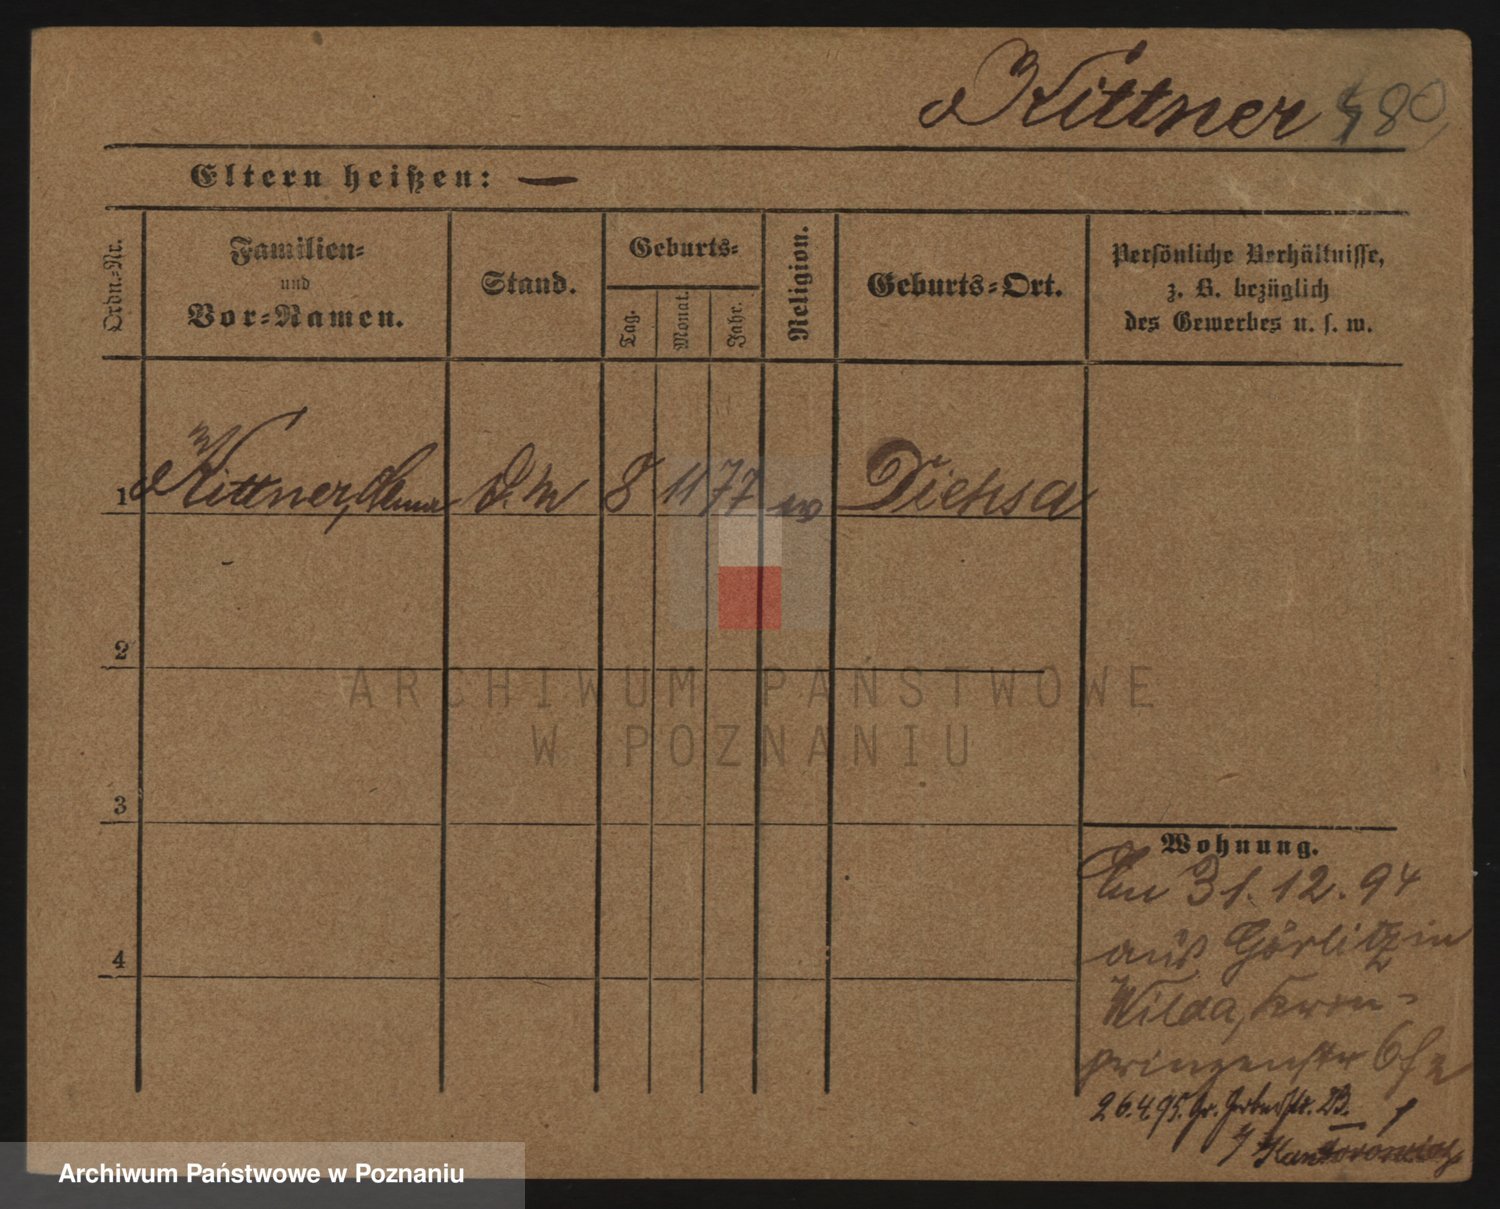 Kittner 480
Eltern heißen: —
Ordn.-Nr.
Familien-
und
Vor-Namen.
Stand.
Geburts-
Tag.
Monat.
Jahr.
Religion.
Geburts-Ort.
Persönliche Verhältnisse,
z. B. bezüglich
des Gewerbes u. s. w.
1 Kittner, 8 11 77 Diehsa
2
3
4
Wohnung.
31.12.94
aus Görlitz in
Wilda, Kron-
prinzenstr
26.4.95. Gr. Gerberstr.
ARCHIWUM PAŃSTWOWE
W POZNANIU
Archiwum Państwowe w Poznaniu